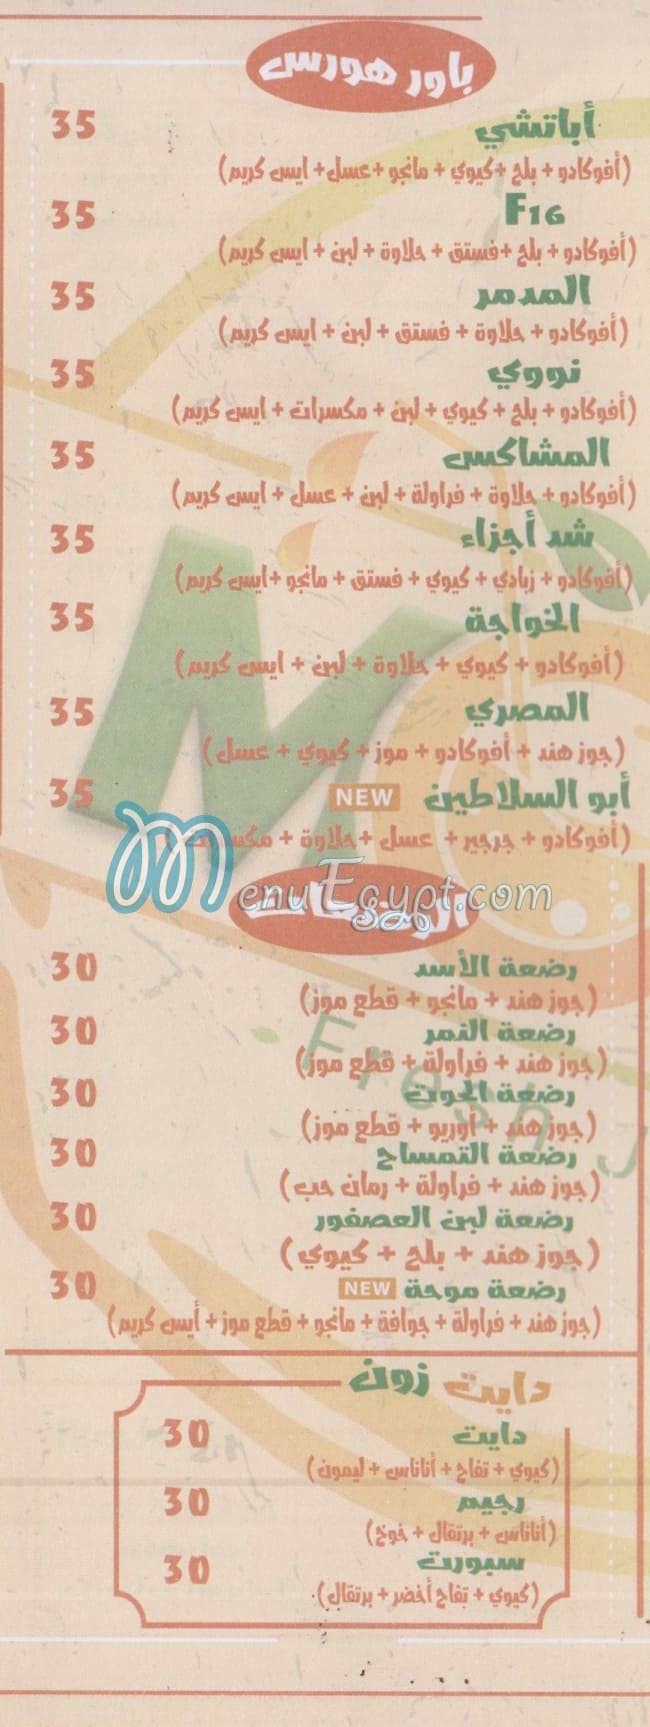 باور هورس
أباتشي 35
(أفوكادو + بلح +كيوي + مانجو +عسل+ ايس كريم)
F16 35
(أفوكادو + بلح +فستق + حلاوة + لبن + ايس كريم)
المدمر 35
(أفوكادو + حلاوة + فستق + لبن + ايس كريم)
نووي 35
(أفوكادو + بلح + كيوي + لبن + مكسرات + ايس كريم)
المشاكس 35
(أفوكادو + حلاوة + فراولة + لبن + عسل + ايس كريم)
شد أجزاء 35
(أفوكادو + زبادي + كيوي + فستق + مانجو +ايس كريم)
الخواجة 35
(أفوكادو + كيوي + حلاوة + لبن + ايس كريم)
المصري 35
(جوز هند + أفوكادو + موز + كيوي + عسل)
أبو السلاطين NEW 35
(أفوكادو + جرجير + عسل +حلاوة +
MenuEgypt.com
رضعة الأسد 30
(جوز هند + مانجو + قطع موز)
رضعة النمر 30
(جوز هند + فراولة + قطع موز)
رضعة الحوت 30
(جوز هند + أوريو + قطع موز)
رضعة التمساح 30
(جوز هند + فراولة + رمان حب)
رضعة لبن العصفور 30
(جوز هند + بلح + كيوي)
رضعة موحة NEW 30
(جوز هند + فراولة + جوافة + مانجو + قطع موز + أيس كريم)
دايت زون
دايت 30
(كيوي + تفاح + أناناس + ليمون)
رجيم 30
(أناناس + برتقال + خوخ)
سبورت 30
(كيوي + تفاح أخضر + برتقال)
Fresh J